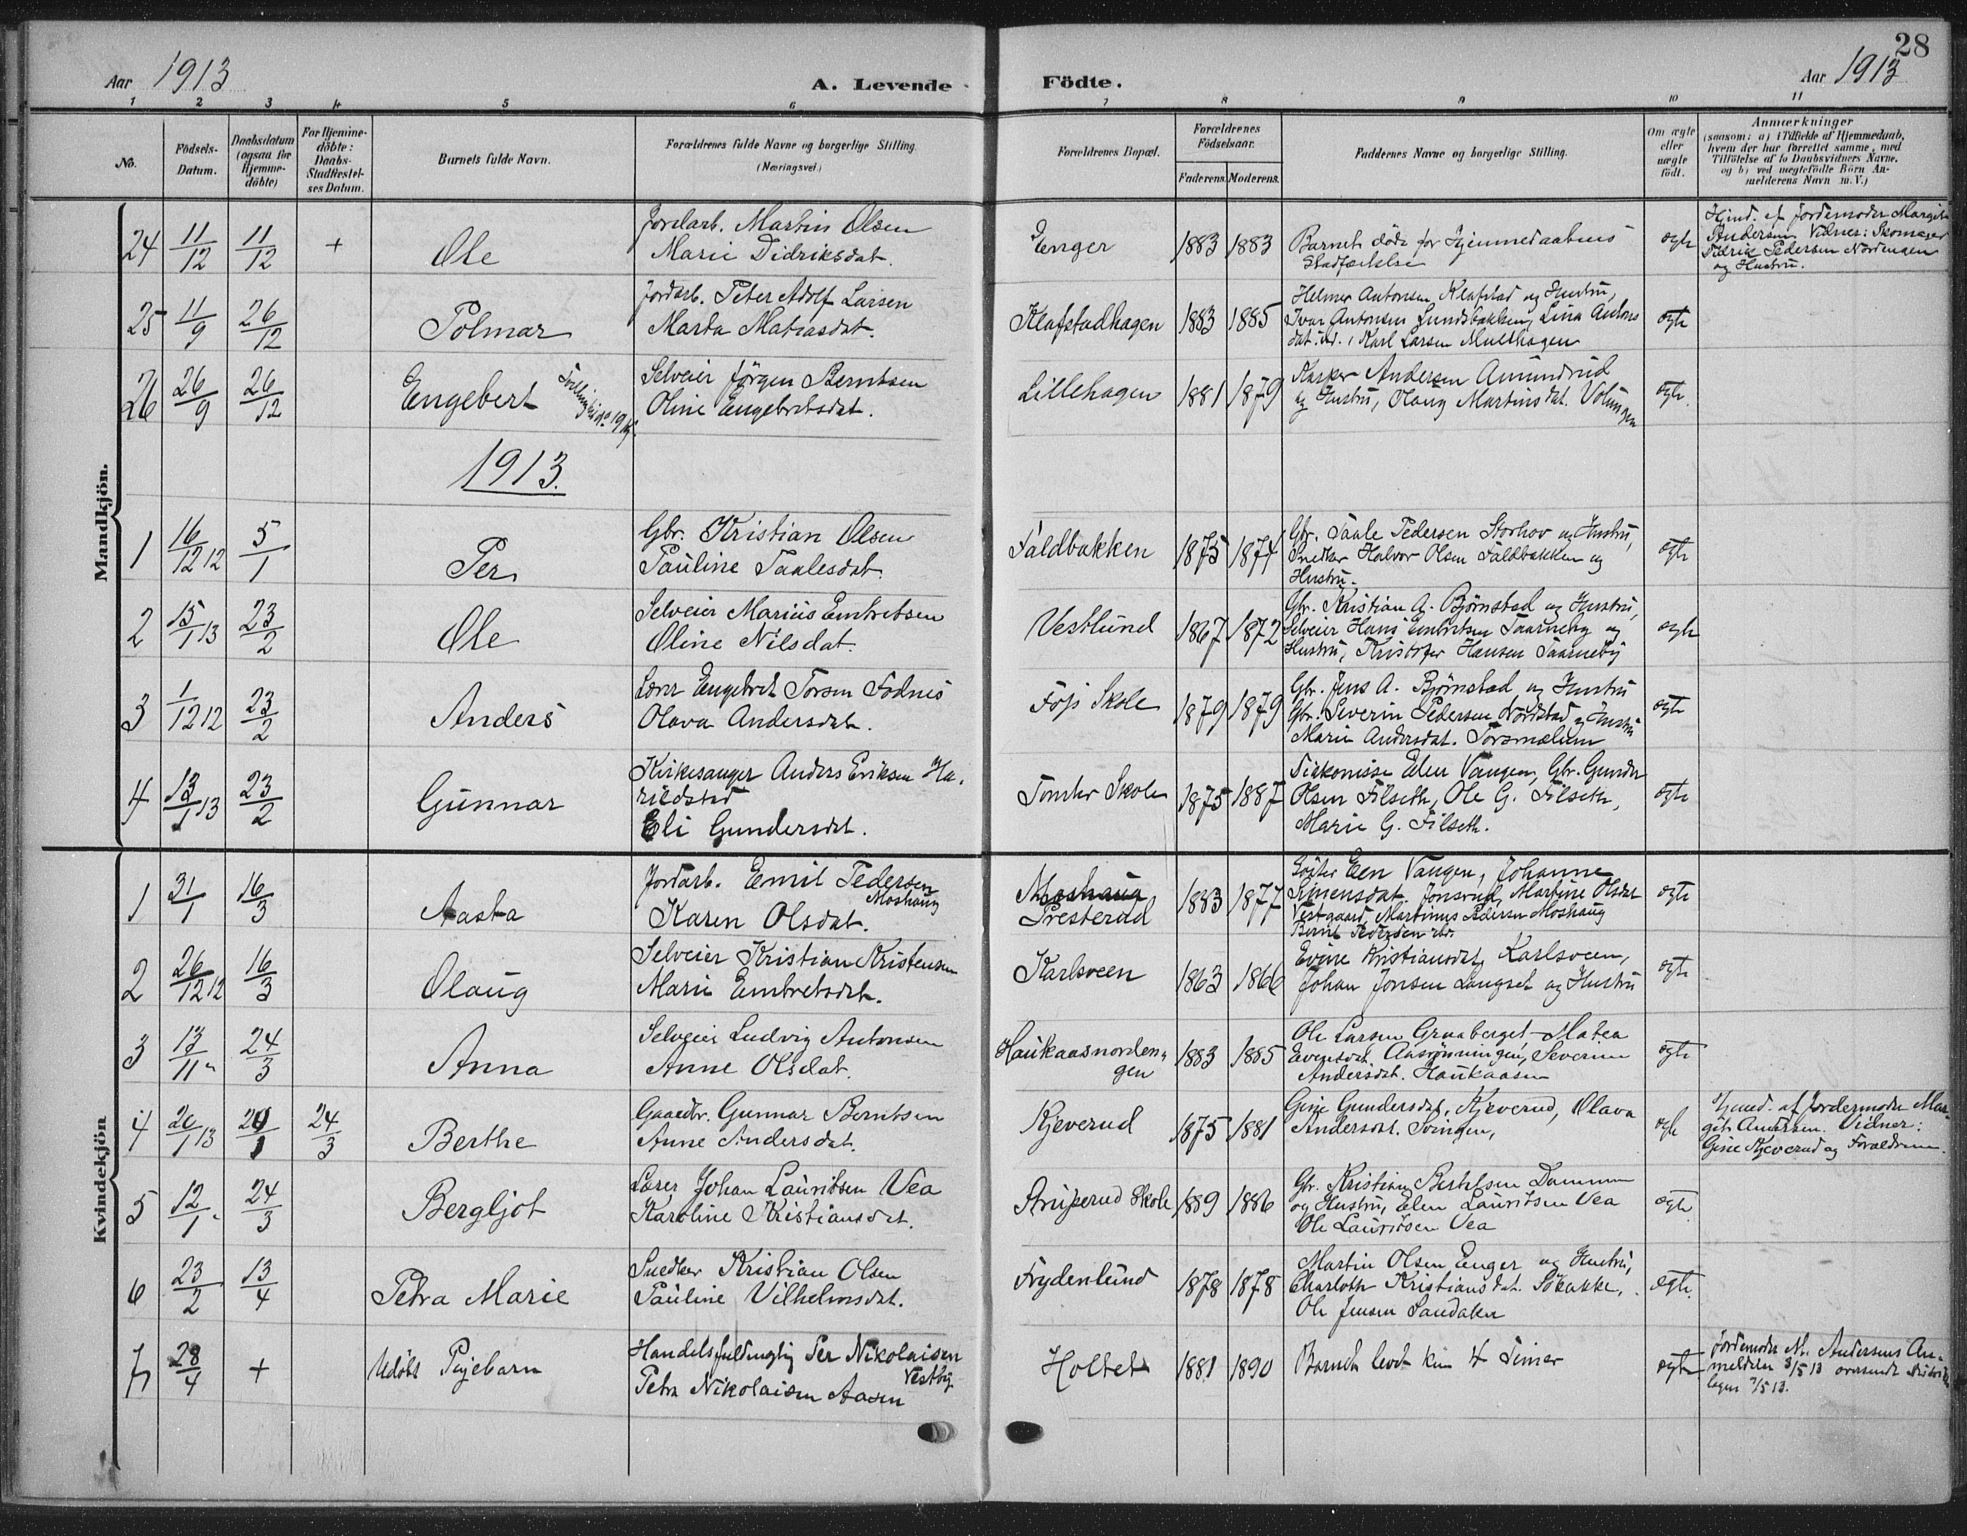 28
Aar 1913 A. Levende Födte. Aar 1913
1 2 3 4 5 6 7 8 9 10 11
No. Födsels-Datum. Daabsdatum (ogsaa for Hjemme-döbte) For Hjemme-döbte: Daabs-Stadfæstel-ses Datum. Barnets fulde Navn. Forældrenes fulde Navne og borgerlige Stilling. (Næringsvei.) Forældrenes Bopæl. Forældrenes Födselsaar. Faderens. Moderens. Faddernes Navne og borgerlige Stilling. Om ægte eller uægte födt. Anmærkninger (saasom: a) i Tilfælde af Hjemmedaab, hvem der har forrettet samme, med Tilföielse af to Daabsvidners Navne, og b) ved uægtefödte Börn An-melderens Navn m. V.)
Mandkjön.
24 11/12 11/12 + Ole Jordarb. Martin Olsen
Marie Didriksdat. Enger 1883 1883 Barnet døde før Hjemmedaabens
Stadfæstelse ægte Hjmd. af Jordemoder Margit
Andersen Vidner: Skomager
Pedersen Nordengen
og Hustru.
25 11/9 26/12 Polmar Jordarb. Peter Adolf Larsen
Marta Matiasdat. Klafstadhagen 1883 1885 Helmer Antonsen Klafstad og Hustru,
Ivar Antonsen Lundsbakken, Lina Antons
dat. ibd., Karl Larsen ægte
26 26/9 26/12 Engebert Selveier Jörgen Berntsen
Oline Engebretsdat. Lillehagen 1881 1879 Kasper Andersen Amundrud
og Hustru, Olaug Martinsdat. Volungen ægte.
1913.
1 16/12 12 5/1 Per Gbr. Kristian Olsen
Pauline Paalesdat. Faldbakken 1875 1874 Gbr. Paale Pedersen Storhov og Hustru,
Snedker Halvor Olsen Faldbakken og
Hustru. ægte
2 15/1 13 23/2 Ole Selveier Marius Embretsen
Oline Nilsdat. Vestlund 1867 1872 Gbr. Kristian A. Bjørnstad og Hustru,
Selveier Hans Embretsen Taarneby og
Hustru, Kristofer Hansen Taarneby ægte
3 1/12 12 23/2 Anders Lærer Engebret Torsen Fodnes
Olava Andersdat. Fös Skole 1879 1879 Gbr. Jens A. Bjørnstad og Hustru
Gbr. Severin Pedersen Nordstad og Hustru
Marie Andersdat. ægte
4 13/1 13 23/2 Gunnar Kirkesanger Anders Eriksen Ha-
rildstad
Eli Gundersdat. Tomter Skole 1875 1887 Diakonisse Elen Vangen, Gbr. Gunder
Olsen Filseth, Ole G. Filseth,
Marie G. Filseth. ægte
Kvindekjön
1 31/1 16/3 Aasta Jordarb. Emil Pedersen
Moshaug
Karen Olsdat. Moshaug
Presterud 1883 1877 Vangen, Johanne
Simensdat. Jonsrud, Martine Olsdat
Vestgaard, Martinus Pedersen Moshaug
Bernt Pedersen ibd. ægte
2 26/12 12 16/3 Olaug Selveier Kristian Kristensen
Marie Embretsdat. Karlsveen 1863 1866 Evine Kristiansdat. Karlsveen,
Johan Jonsen Langset og Hustru ægte
3 13/11 " 24/3 Anna Selveier Ludvig Antonsen
Anne Olsdat. Haukaasnorden-
gen 1883 1885 Ole Larsen Graaberget, Matea
Evensdat. Aasrønningen, Severine
Andersdat. Haukaasen ægte
4 20/1 13 24/3 Berthe Gaardbr. Gunnar Berntsen
Anne Andersdat. Kjeverud 1875 1881 Gine Gundersdat. Kjeverud, Olava
Andersdat. Svingen, ægte Hjmd. af Jordemoder Mar-
git Andersen. Vidner:
Gine Kjeverud og Forældrene.
5 12/1 " 24/3 Bergljot Lærer Johan Lauritsen Vea
Karoline Kristiansdat. Skole 1889 1886 Gbr. Kristian Bertelsen Dammen
og Hustru, Elen Lauritsen Vea
Ole Lauritsen Vea ægte.
6 23/2 13/4 Petra Marie Snedker Kristian Olsen
Pauline Vilhelmsdat. Frydenlund 1878 1878 Martin Olsen Enger og Hustru,
Charlotte Kristiansdat. Sobakke,
Ole Jensen Sandaker ægte.
7 28/4 + Udöbt Pigebarn Handelsfuldmægtig Per Nikolaisen
Vestby
Petra Nikolaisen Aasen Holtet 1881 1890 Barnet levet kun 4 Timer ægte Jordemoder M. Andersens An-
meldelse 3/5 13 oversendt
7/5 13.